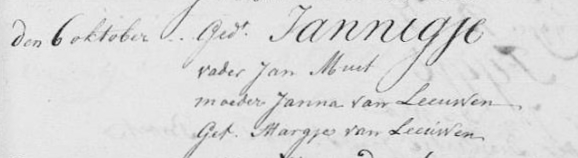 den 6 oktober .. Gedt. Jannigje
vader Jan Muet
moeder Janna van Leeuwen
Get. Margje van Leeuwen